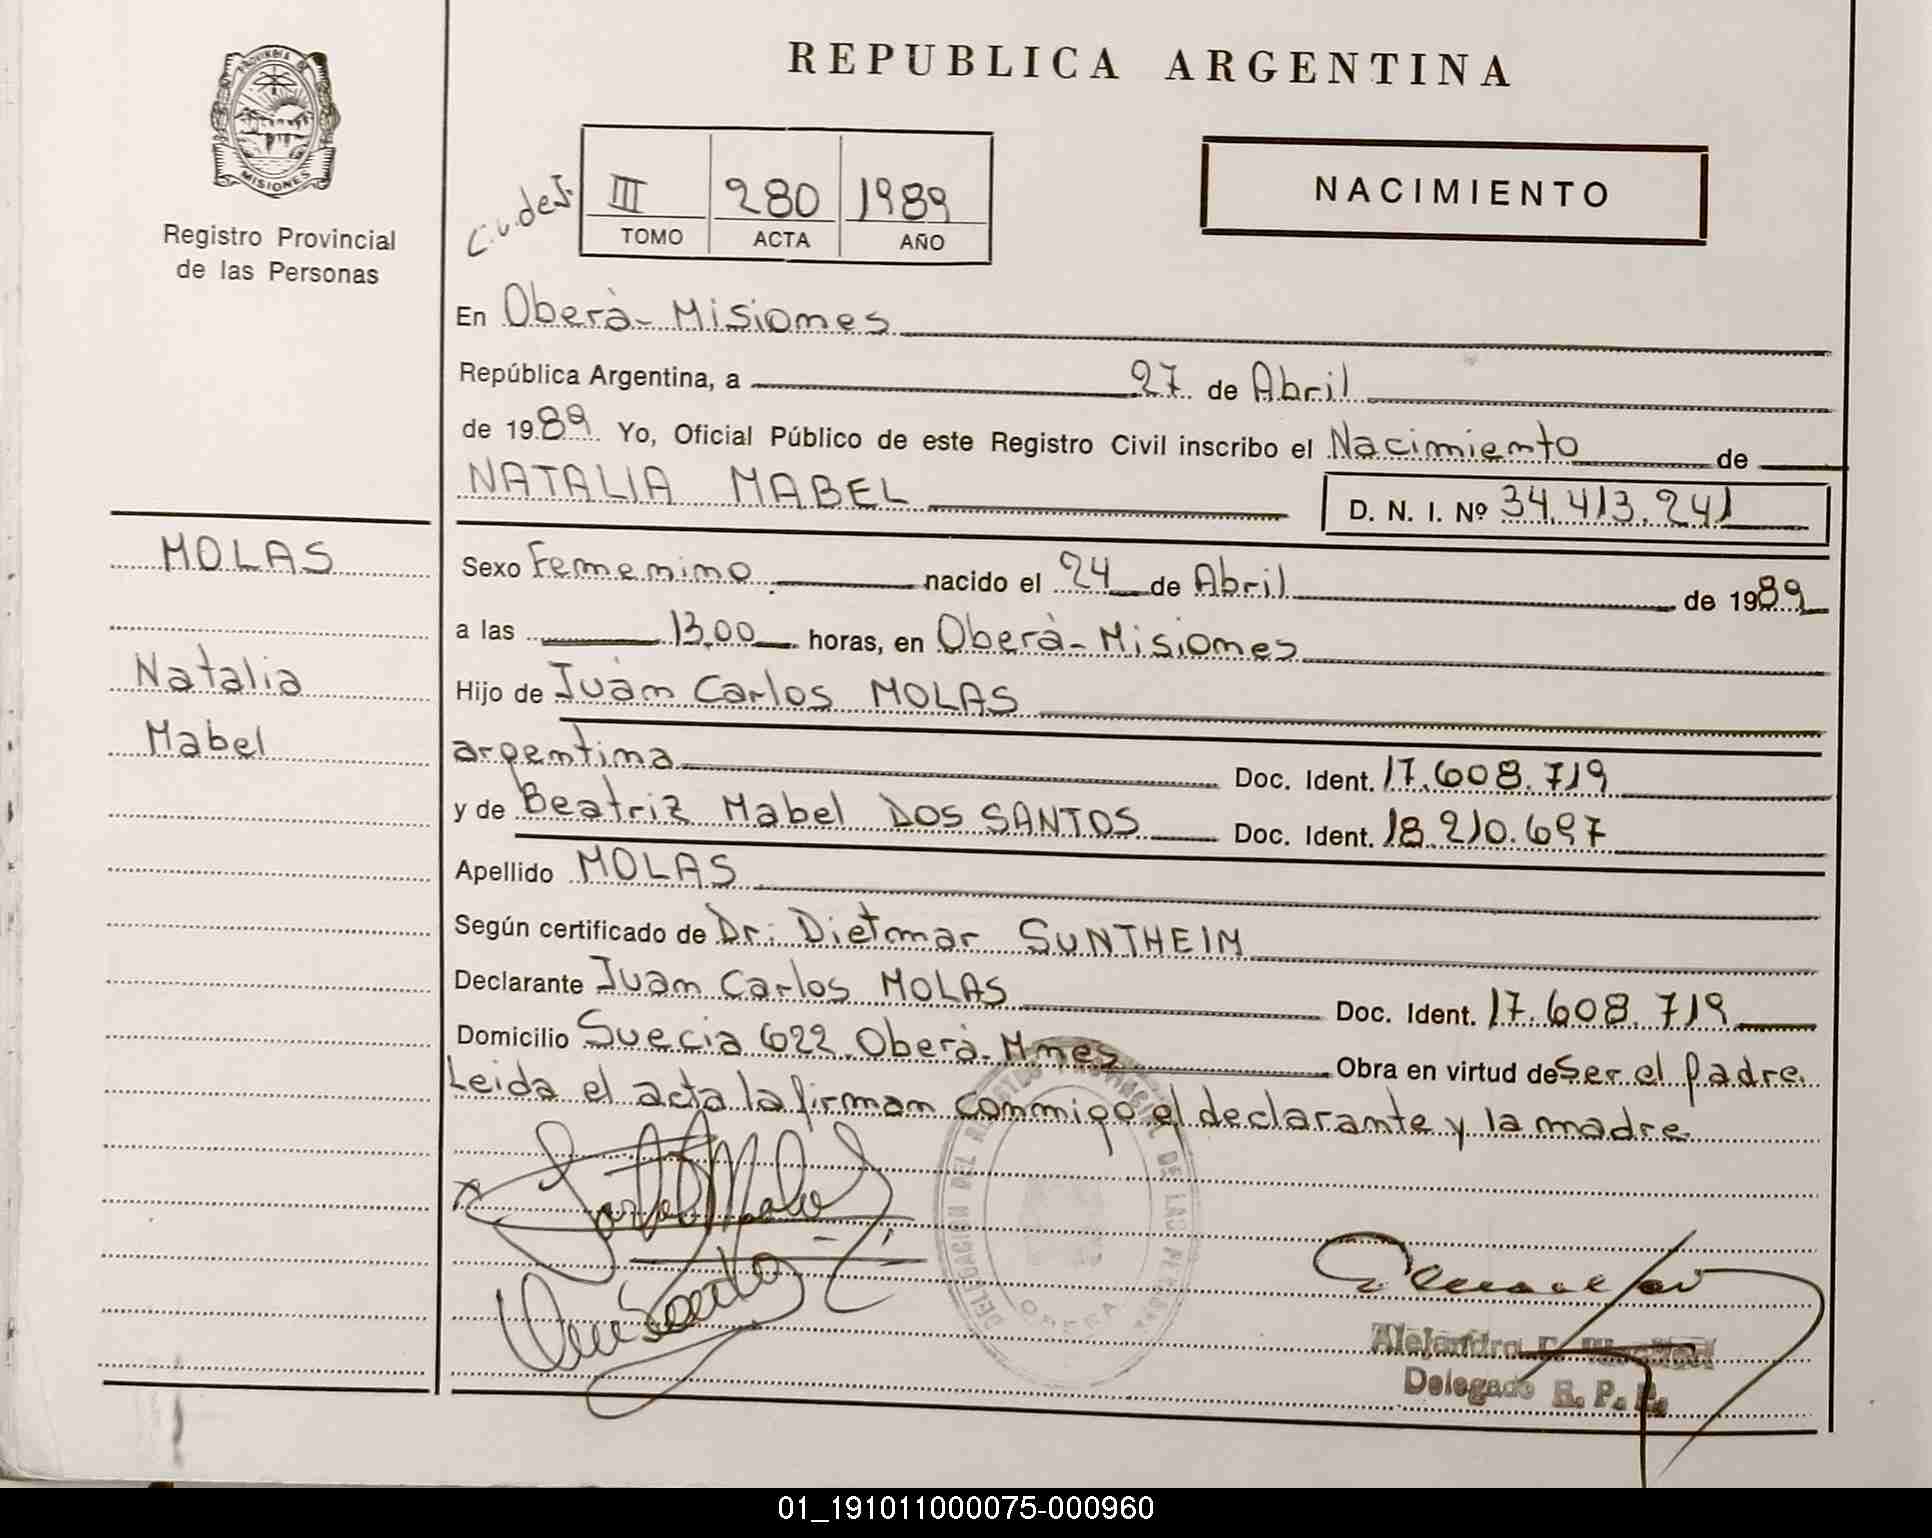 REPUBLICA ARGENTINA
PROVINCIA DE
MISIONES
Registro Provincial
de las Personas
III 280 1989
TOMO ACTA AÑO
NACIMIENTO
En Oberà - Misiones
República Argentina, a 27 de Abril
de 1989 Yo, Oficial Público de este Registro Civil inscribo el Nacimiento de
NATALIA MABEL D. N. I. Nº 34.413.241
MOLAS
Natalia
Mabel
Sexo Femenino nacido el 24 de Abril de 1989
a las 13,00 horas, en Oberà - Misiones
Hijo de Juan Carlos MOLAS
argentina Doc. Ident. 17.608.719
y de Beatriz Mabel DOS SANTOS Doc. Ident. 18.210.697
Apellido MOLAS
Según certificado de Dr: Dietmar SUNTHEIM
Declarante Juan Carlos MOLAS Doc. Ident. 17.608.719
Domicilio Suecia 622. Oberà - Mnes Obra en virtud de Ser el padre.
Leida el acta la firman conmigo el declarante y la madre
DELEGACION DEL REGISTRO PROVINCIAL DE LAS PERSONAS
OBERA
Alejandro
Delegado R. P. P.
01_191011000075-000960